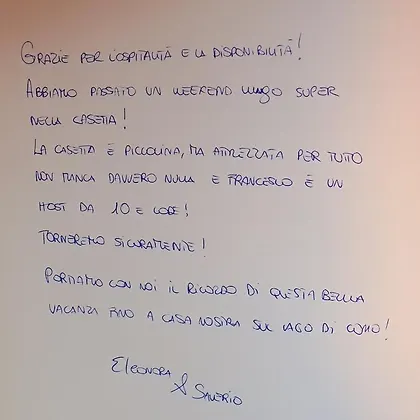 GRAZIE PER L'OSPITALITÀ E LA DISPONIBILITÀ!
ABBIAMO PASSATO UN WEEKEND LUNGO SUPER
NELLA CASETTA!
LA CASETTA È PICCOLINA, MA ATTREZZATA PER TUTTO
NON MANCA DAVVERO NULLA E FRANCESCO È UN
HOST DA 10 E LODE!
TORNEREMO SICURAMENTE!
PORTIAMO CON NOI IL RICORDO DI QUESTA BELLA
VACANZA FINO A CASA NOSTRA SUL LAGO DI COMO!
ELEONORA
& SAVERIO